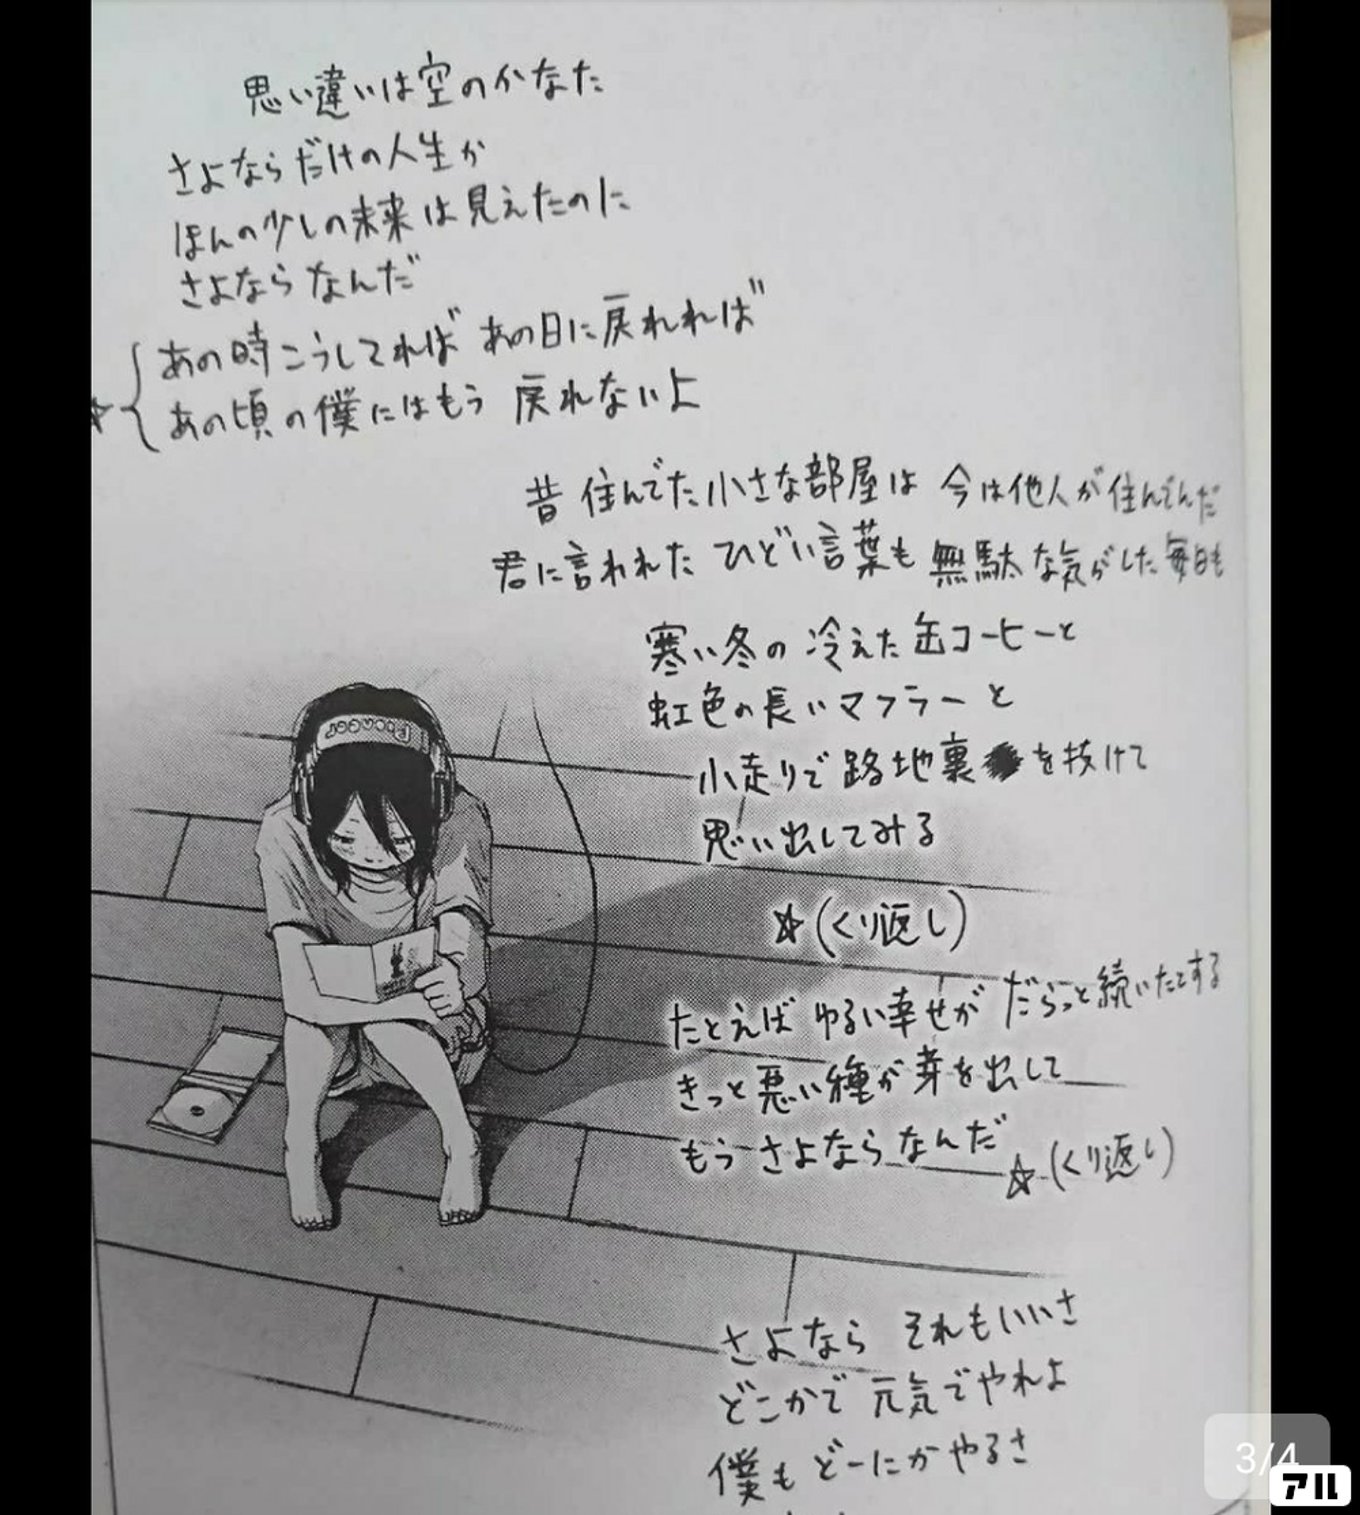 思い違いは空のかなた
さよならだけの人生か
ほんの少しの未来は見えたのに
さよならなんだ
あの時こうしてれば あの日に戻れれば
☆ あの頃の僕にはもう 戻れないよ
昔 住んでた小さな部屋は 今は他人が住んでんだ
君に言われた ひどい言葉も 無駄な気がした毎日も
寒い冬の 冷えた缶コーヒーと
虹色の長いマフラーと
小走りで 路地裏を抜けて
思い出してみる
☆(くり返し)
たとえば ゆるい幸せが だらっと続いたとする
きっと悪い種が芽を出して
もう さよならなんだ ☆(くり返し)
さよなら それもいいさ
どこかで 元気でやれよ
僕も どーにかやるさ
3/4
アル